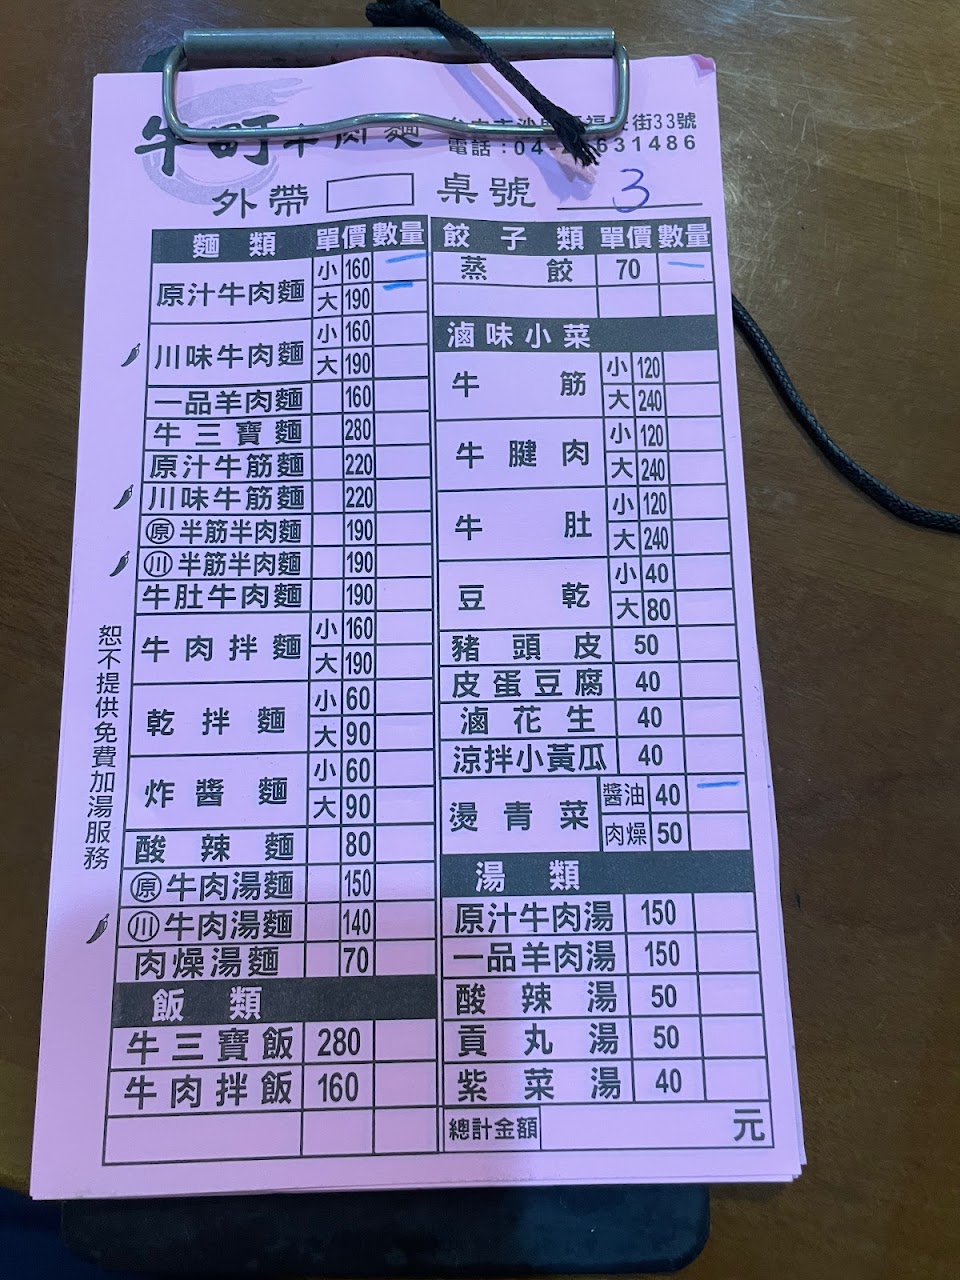 牛町牛肉麵
街33號
電話:04- 631486
外帶 桌號 3
麵類 單價 數量
原汁牛肉麵 小 160 一
大 190 一
川味牛肉麵 小 160
大 190
一品羊肉麵 160
牛三寶麵 280
原汁牛筋麵 220
川味牛筋麵 220
原 半筋半肉麵 190
川 半筋半肉麵 190
牛肚牛肉麵 190
牛肉拌麵 小 160
大 190
乾拌麵 小 60
大 90
炸醬麵 小 60
大 90
酸辣麵 80
原 牛肉湯麵 150
川 牛肉湯麵 140
肉燥湯麵 70
飯類
牛三寶飯 280
牛肉拌飯 160
恕不提供免費加湯服務
餃子類 單價 數量
蒸餃 70 一
滷味小菜
牛筋 小 120
大 240
牛腱肉 小 120
大 240
牛肚 小 120
大 240
豆乾 小 40
大 80
豬頭皮 50
皮蛋豆腐 40
滷花生 40
涼拌小黃瓜 40
燙青菜 醬油 40 一
肉燥 50
湯類
原汁牛肉湯 150
一品羊肉湯 150
酸辣湯 50
貢丸湯 50
紫菜湯 40
總計金額 元